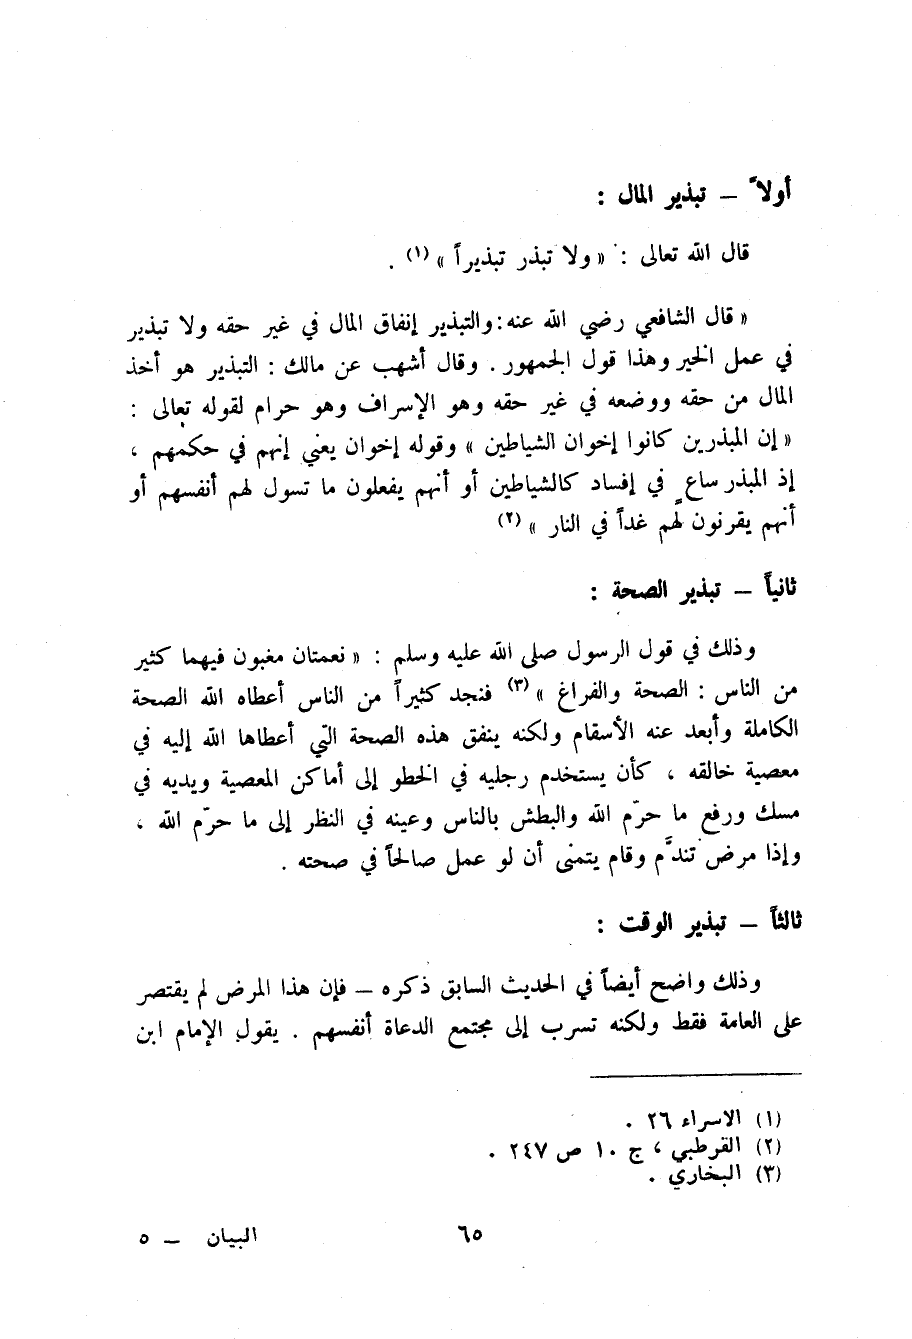 أولاً — تبذير المال :
قال الله تعالى : « ولا تبذر تبذيراً » (١) .
« قال الشافعي رضي الله عنه : والتبذير إنفاق المال في غير حقه ولا تبذير
في عمل الخير وهذا قول الجمهور . وقال أشهب عن مالك : التبذير هو أخذ
المال من حقه ووضعه في غير حقه وهو الإسراف وهو حرام لقوله تعالى :
« إن المبذرين كانوا إخوان الشياطين » وقوله إخوان يعني إنهم في حكمهم ،
إذ المبذر ساعٍ في إفساد كالشياطين أو أنهم يفعلون ما تسول لهم أنفسهم أو
أنهم يقرنون لهم غداً في النار » (٢)
ثانياً — تبذير الصحة :
وذلك في قول الرسول صلى الله عليه وسلم : « نعمتان مغبون فيهما كثير
من الناس : الصحة والفراغ » (٣) فنجد كثيراً من الناس أعطاه الله الصحة
الكاملة وأبعد عنه الأسقام ولكنه ينفق هذه الصحة التي أعطاها الله إليه في
معصية خالقه ، كأن يستخدم رجليه في الخطو إلى أماكن المعصية ويديه في
مسك ورفع ما حرّم الله والبطش بالناس وعينه في النظر إلى ما حرّم الله ،
وإذا مرض تندَّم وقام يتمنى أن لو عمل صالحاً في صحته .
ثالثاً — تبذير الوقت :
وذلك واضح أيضاً في الحديث السابق ذكره — فإن هذا المرض لم يقتصر
على العامة فقط ولكنه تسرب إلى مجتمع الدعاة أنفسهم . يقول الإمام ابن
(١) الاسراء ٢٦ .
(٢) القرطبي ، ج ١٠ ص ٢٤٧ .
(٣) البخاري .
٦٥
البيان — ٥